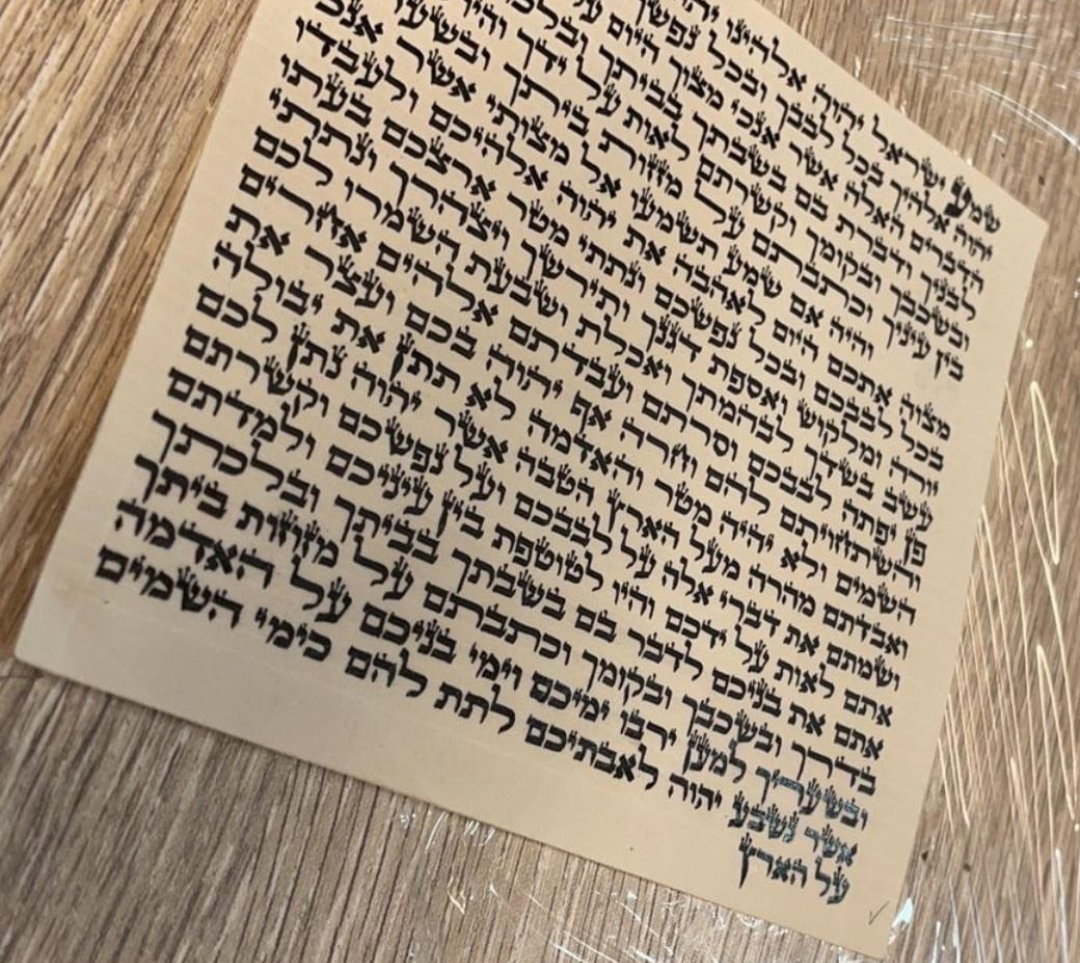 שמע ישראל יהוה אלהינו
יהוה אלהיך בכל לבבך ובכל נפשך
הדברים האלה אשר אנכי מצוך היום על
לבניך ודברת בם בשבתך בביתך
ובשכבך ובקומך וקשרתם לאות על ידך והיו
בין עיניך וכתבתם על מזזות ביתך ובשעריך
והיה אם שמע תשמעו אל מצותי אשר אנכי
מצוה אתכם היום לאהבה את יהוה אלהיכם ולעבדו
בכל לבבכם ובכל נפשכם ונתתי מטר ארצכם בעתו
יורה ומלקוש ואספת דגנך ותירשך ויצהרך ונתתי
עשב בשדך לבהמתך ואכלת ושבעת השמרו לכם
פן יפתה לבבכם וסרתם ועבדתם אלהים אחרים
והשתחויתם להם וחרה אף יהוה בכם ועצר את
השמים ולא יהיה מטר והאדמה לא תתן את יבולה
ואבדתם מהרה מעל הארץ הטבה אשר יהוה נתן לכם
ושמתם את דברי אלה על לבבכם ועל נפשכם וקשרתם
אתם לאות על ידכם והיו לטוטפת בין עיניכם ולמדתם
אתם את בניכם לדבר בם בשבתך בביתך ובלכתך
בדרך ובשכבך ובקומך וכתבתם על מזוזות ביתך
ובשעריך למען ירבו ימיכם וימי בניכם על האדמה
אשר נשבע יהוה לאבתיכם לתת להם כימי השמים
על הארץ